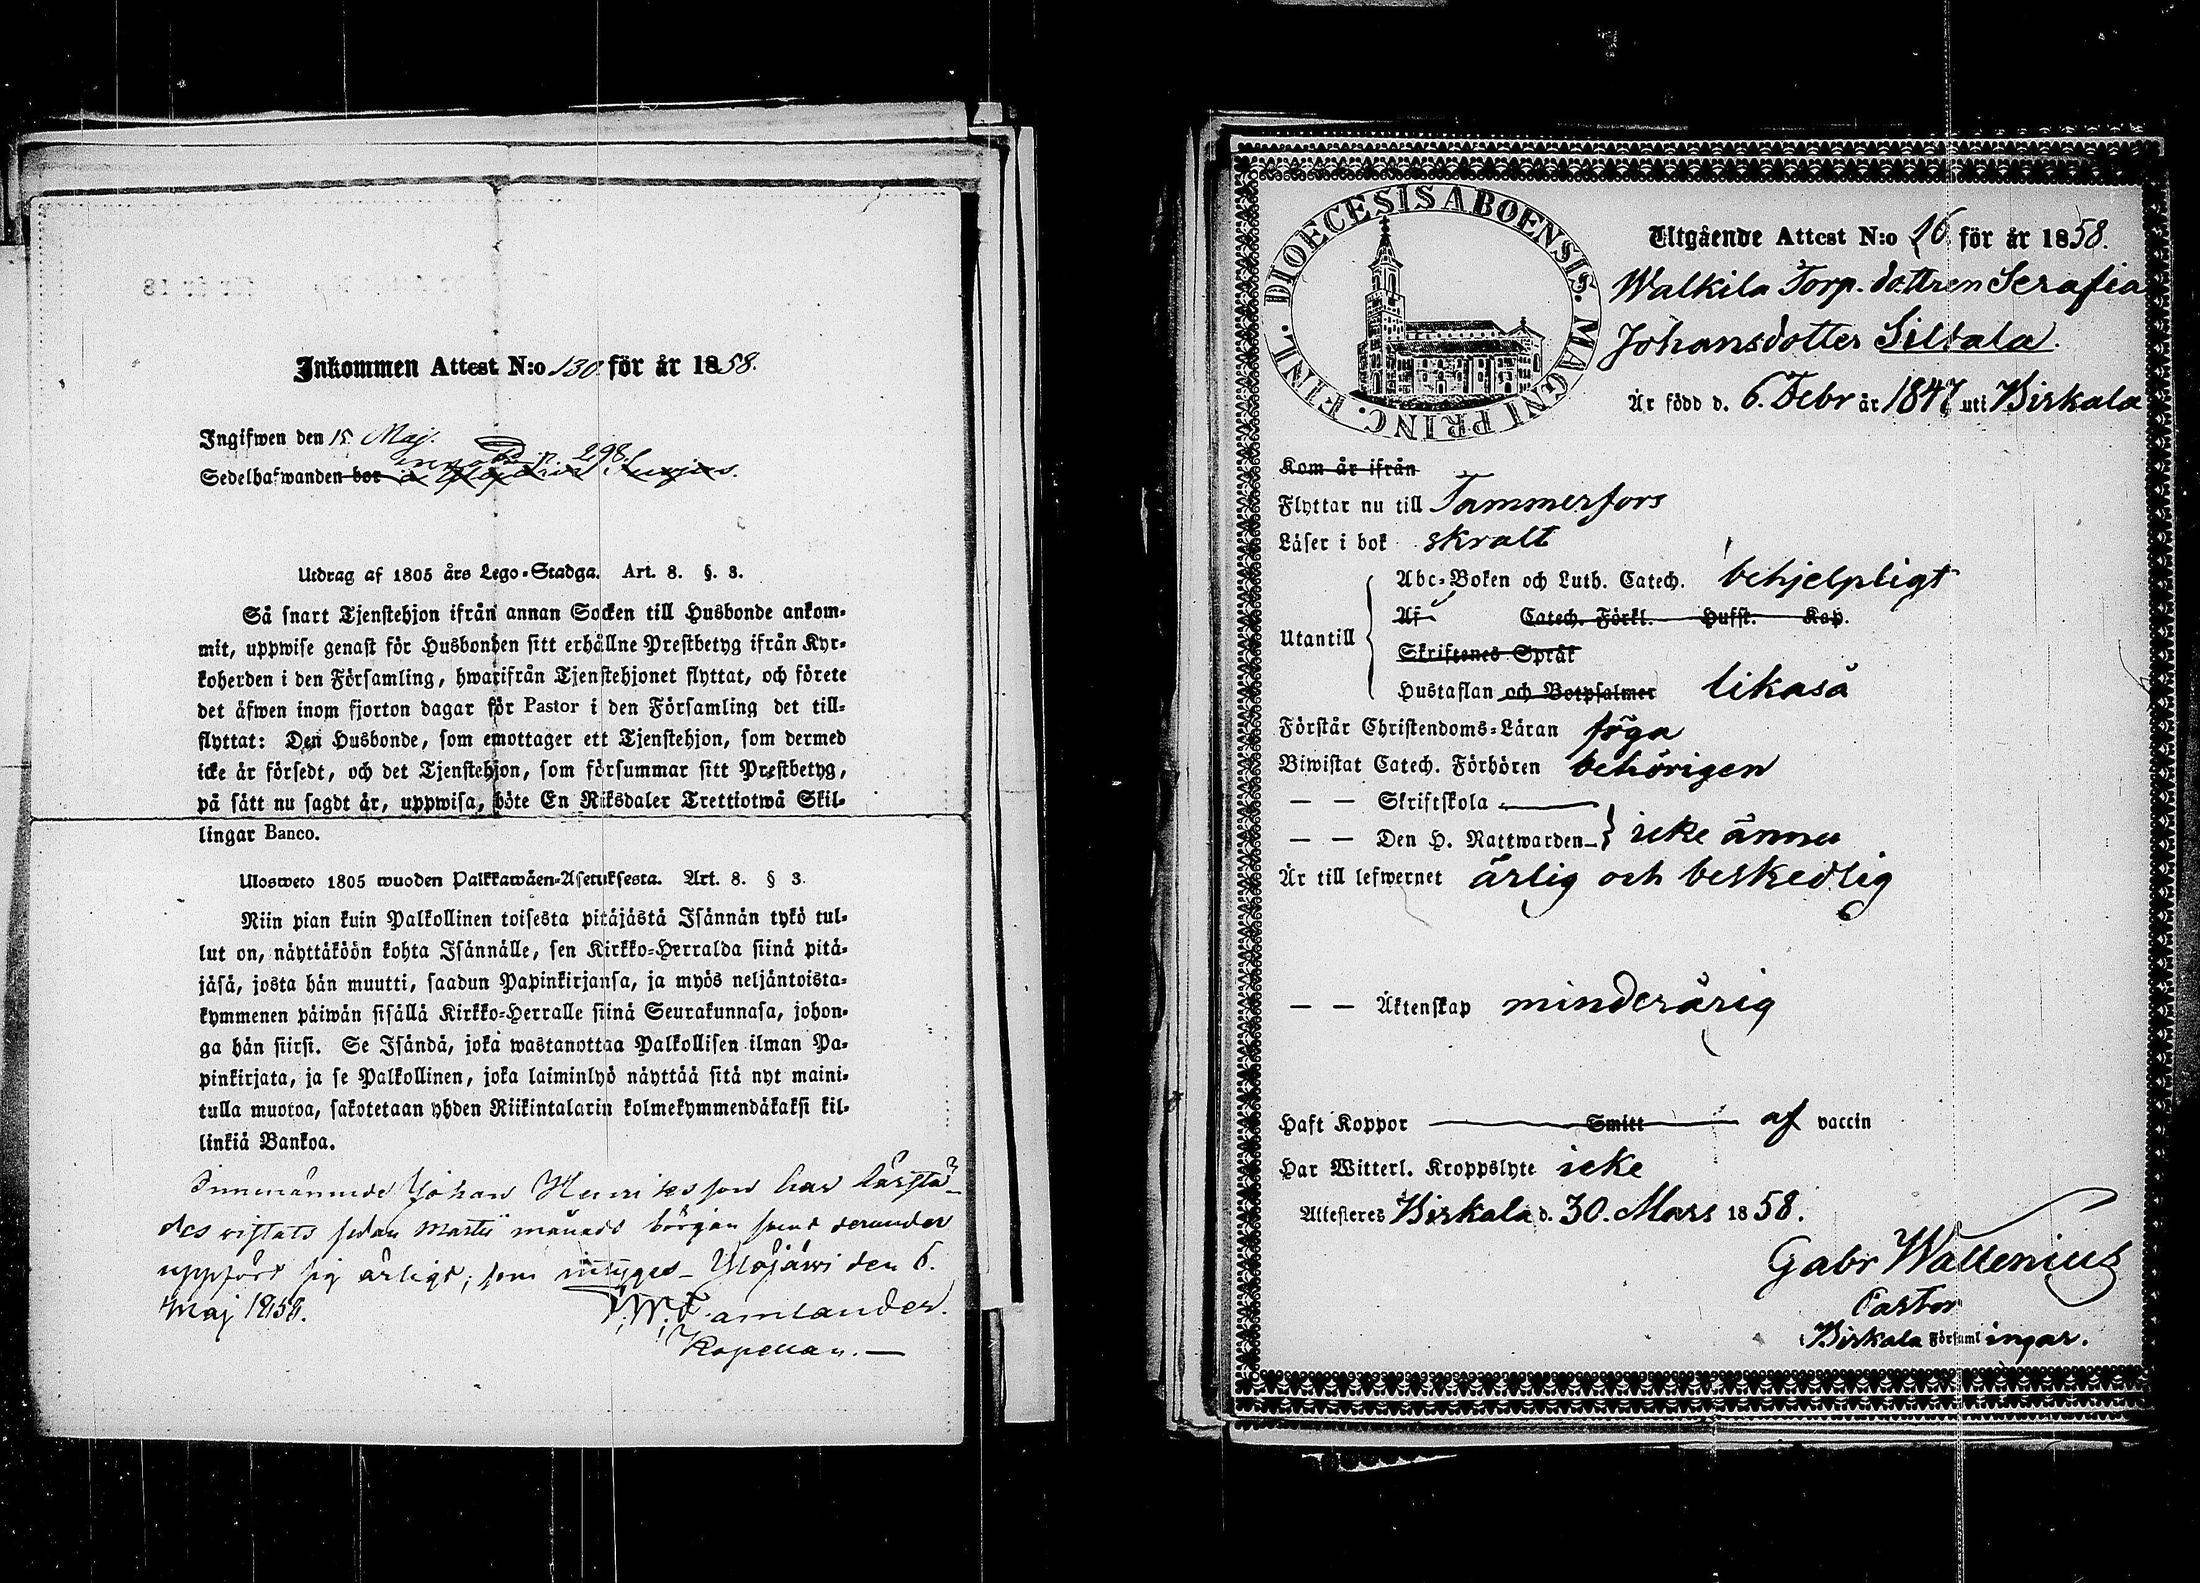 Inkommen Attest N:o 130 för år 1858.
Ingifwen den 15. Maj.
298.
Sedelhafwanden bor
Utdrag af 1805 års Lego-Stadga. Art. 8. §. 3.
Så snart Tjenstehjon ifrån annan Socken till Husbonde ankom-
mit, uppwise genast för Husbonden sitt erhållne Prestbetyg ifrån Kyr-
koherden i den Församling, hwarifrån Tjenstehjonet flyttat, och förete
det äfwen inom fjorton dagar för Pastor i den Församling det till-
flyttat: Den Husbonde, som emottager ett Tjenstehjon, som dermed
icke är försedt, och det Tjenstehjon, som försummar sitt Prestbetyg,
på sätt nu sagdt är, uppwisa, böte En Riksdaler Trettiotwå Skil-
lingar Banco.
Ulosweto 1805 wuoden Palkkawäen-Asetuksesta. Art. 8. § 3.
Niin pian kuin Palkollinen toisesta pitäjästä Isännän tykö tul-
lut on, näyttäköön kohta Isännälle, sen Kirkko-Herralda siinä pitä-
jäsä, josta hän muutti, saadun Papinkirjansa, ja myös neljäntoista-
kymmenen päiwän sisällä Kirkko-Herralle siinä Seurakunnasa, johon-
ga hän siirsi. Se Isändä, joka wastanottaa Palkollisen ilman Pa-
pinkirjata, ja se Palkollinen, joka laiminlyö näyttää sitä nyt maini-
tulla muotoa, sakotetaan yhden Riikintalarin kolmekymmendäkaksi kil-
linkiä Bankoa.
Innenämnde Johan Henriksson har härstä-
des vistats sedan Martii månads början samt derunder
uppfört sig ärligt; som intygas_ Ylöjärvi den 6.
Maj 1858. Famlander.
Kapellan. —
DIOECESIS ABOENSIS. MAGNI PRINC. FINL.
Utgående Attest N:o 16 för år 1858.
Walkila Torp. dottren Serafia
Johansdotter Siltala.
Är född d. 6. Febr år 1847 uti Birkala
Kom år ifrån
Flyttar nu till Tammerfors
Läser i bok skralt
Abc-Boken och Luth. Catech. behjelpligt
Af Catech. Förkl. Hufst. Kap.
Utantill
Skriftenes Språk
Hustaflan och Botpsalmer likaså
Förstår Christendoms-Läran föga
Biwistat Catech. Förhören behörigen
— — Skriftskola
— — Den H. Nattwarden } icke ännu
Är till lefwernet ärlig och beskedlig
— — Äktenskap minderårig
Haft Koppor Smitt af vaccin
Har Witterl. Kroppslyte icke
Attesteres Birkala d. 30. Mars 1858.
Gabr Wallenius
Pastor
i Birkala Församlingar.